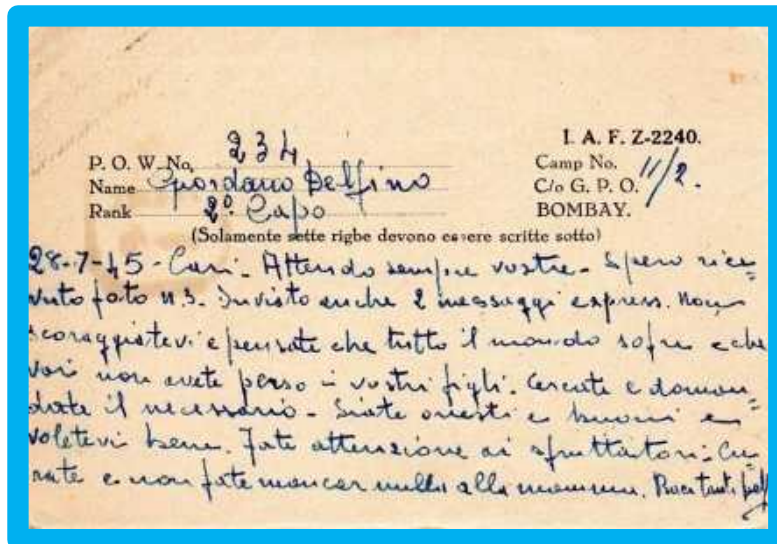 I. A. F. Z-2240.
P. O. W. No. 234
Camp No. 11/2.
Name Giordano Delfino
C/o G. P. O.
Rank 2º Capo
BOMBAY.
(Solamente sette righe devono essere scritte sotto)
28-7-45 - Cari - Attendo sempre vostre - Spero rice=
vuto foto n. 3. Inviato anche 2 messaggi express. Non
scoraggiatevi e pensate che tutto il mondo sofre e che
voi non avete perso i vostri figli. Cercate e doman=
date il necessario - Siate onesti e buoni e
voletevi bene. Fate attenzione ai sfruttatori - Cu
rate e non fate mancar nulla alla mamma. Baci tanti